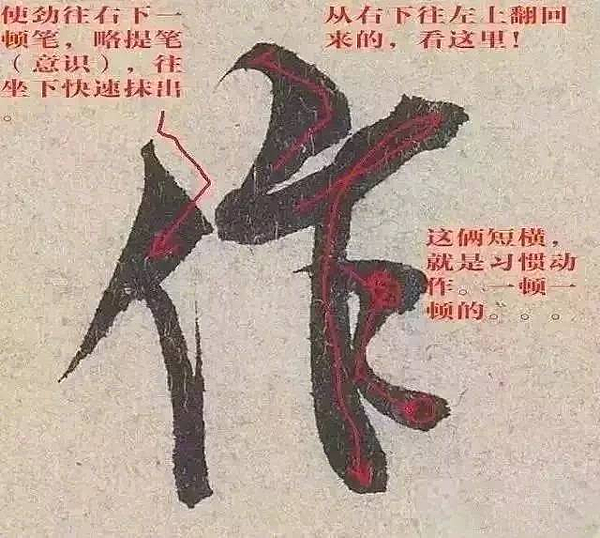 使劲往右下一
顿笔，略提笔
（意识），往
坐下快速抹出
。
从右下往左上翻回
来的，看这里！
作
这俩短横，
就是习惯动
作。一顿一
顿的。。。